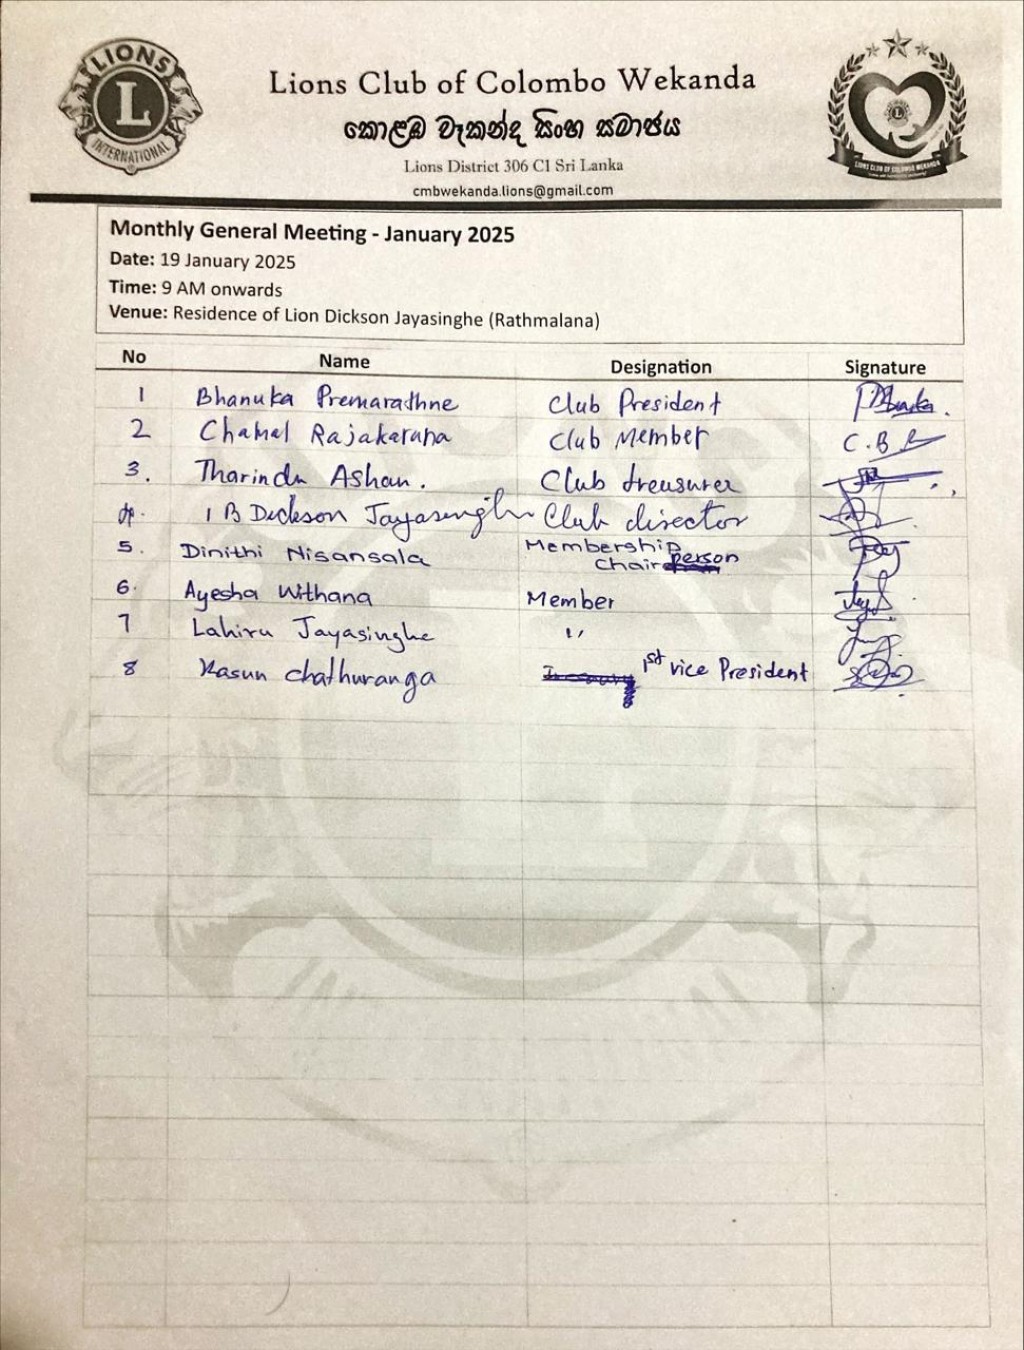 LIONS
L
INTERNATIONAL
Lions Club of Colombo Wekanda
කොළඹ වැකන්ද සිංහ සමාජය
Lions District 306 C1 Sri Lanka
cmbwekanda.lions@gmail.com
LIONS CLUB OF COLOMBO WEKANDA
Monthly General Meeting - January 2025
Date: 19 January 2025
Time: 9 AM onwards
Venue: Residence of Lion Dickson Jayasinghe (Rathmalana)
No Name Designation Signature
1 Bhanuka Premarathne Club President
2 Chamal Rajakaruna Club Member C.B
3. Tharindu Ashan. Club treusurer
4. I B Dickson Jayasingh Club director
5. Dinithi Nisansala Membership
Chairperson
6. Ayesha Withana Member
7 Lahiru Jayasinghe "
8 Kasun Chathuranga 1st vice President